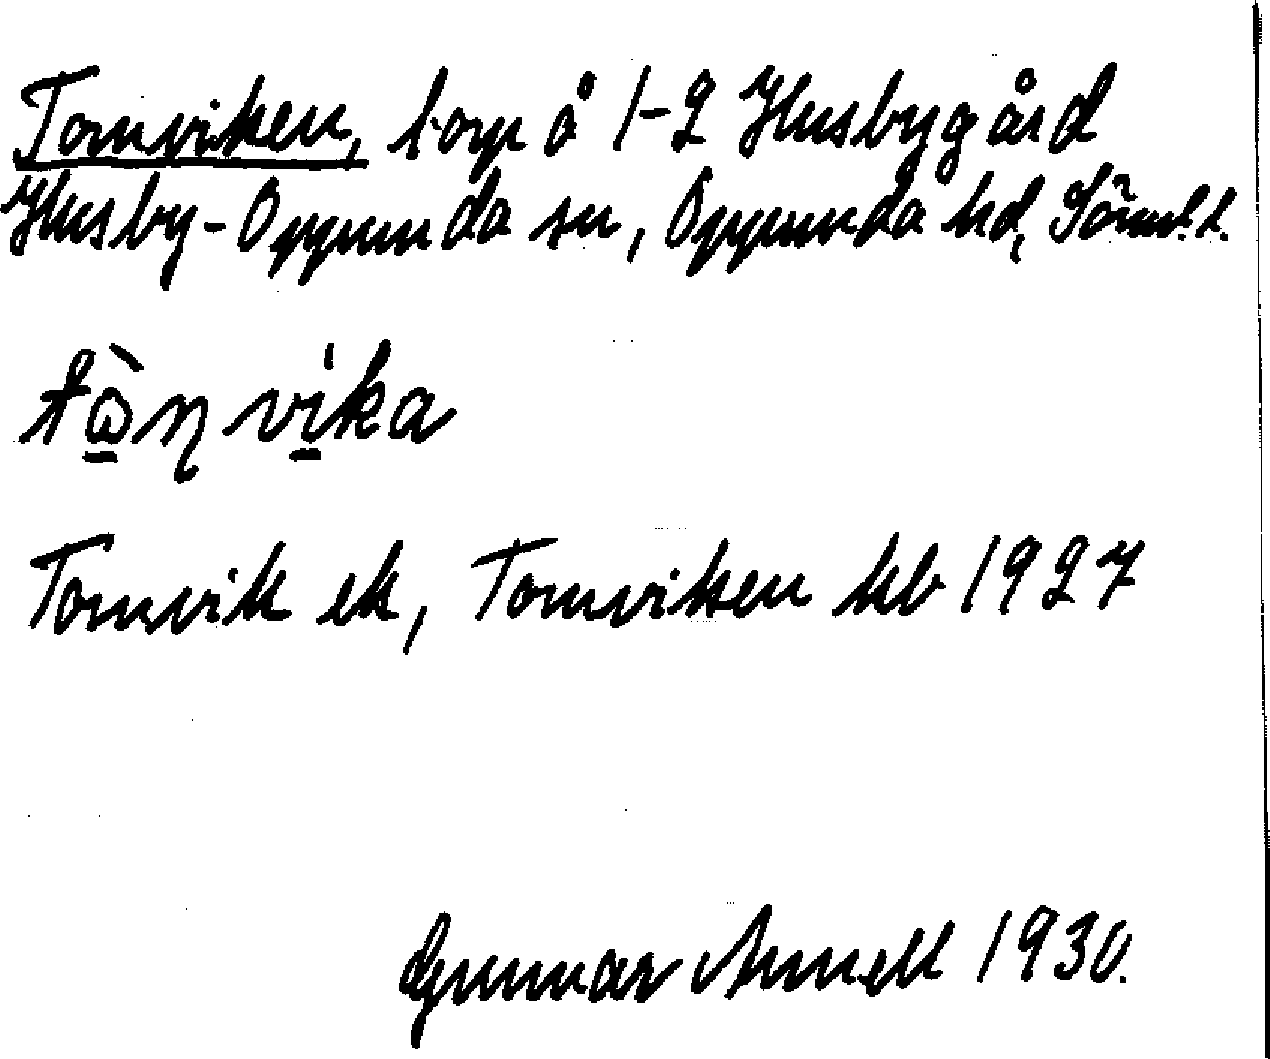 Tornviken, torp å 1-2 Husbygård
Husby-Oppunda sn, Oppunda hd, Sörml. l.
tὼ̱ɳvi̱ka
Tornvik ek, Tornviken kb 1927
Gunnar Arnell 1930.